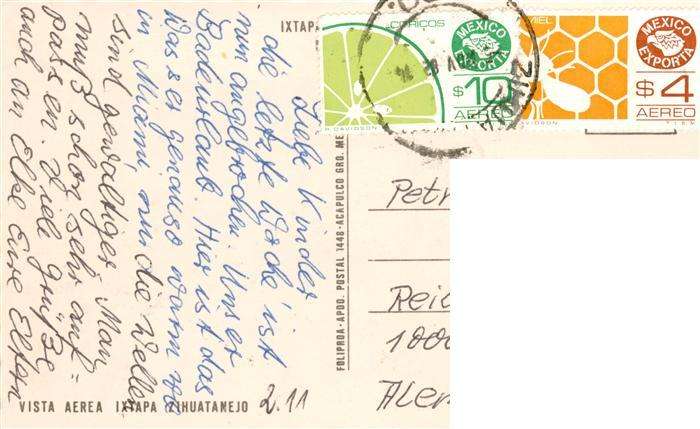 Liebe Kinder,
die letzte Woche ist
nun angebrochen. Unser
Badeurlaub. Hier ist das
Wasser genauso warm wie
in Miami nur die Wellen
sind gewaltiger. Man
muß schon sehr auf=
passen. Viele Grüße
auch an Elke Eure Eltern
2.11
VISTA AEREA IXTAPA ZIHUATANEJO
IXTAPA
FOLIPROA-APDO. POSTAL 1448-ACAPULCO GRO. ME
MEXICO
EXPORTA
$10
AEREO
DAVIDSON
MIEL
MEXICO
EXPORTA
$4
AEREO
T I E V
Petr
Reic
1000
Alem